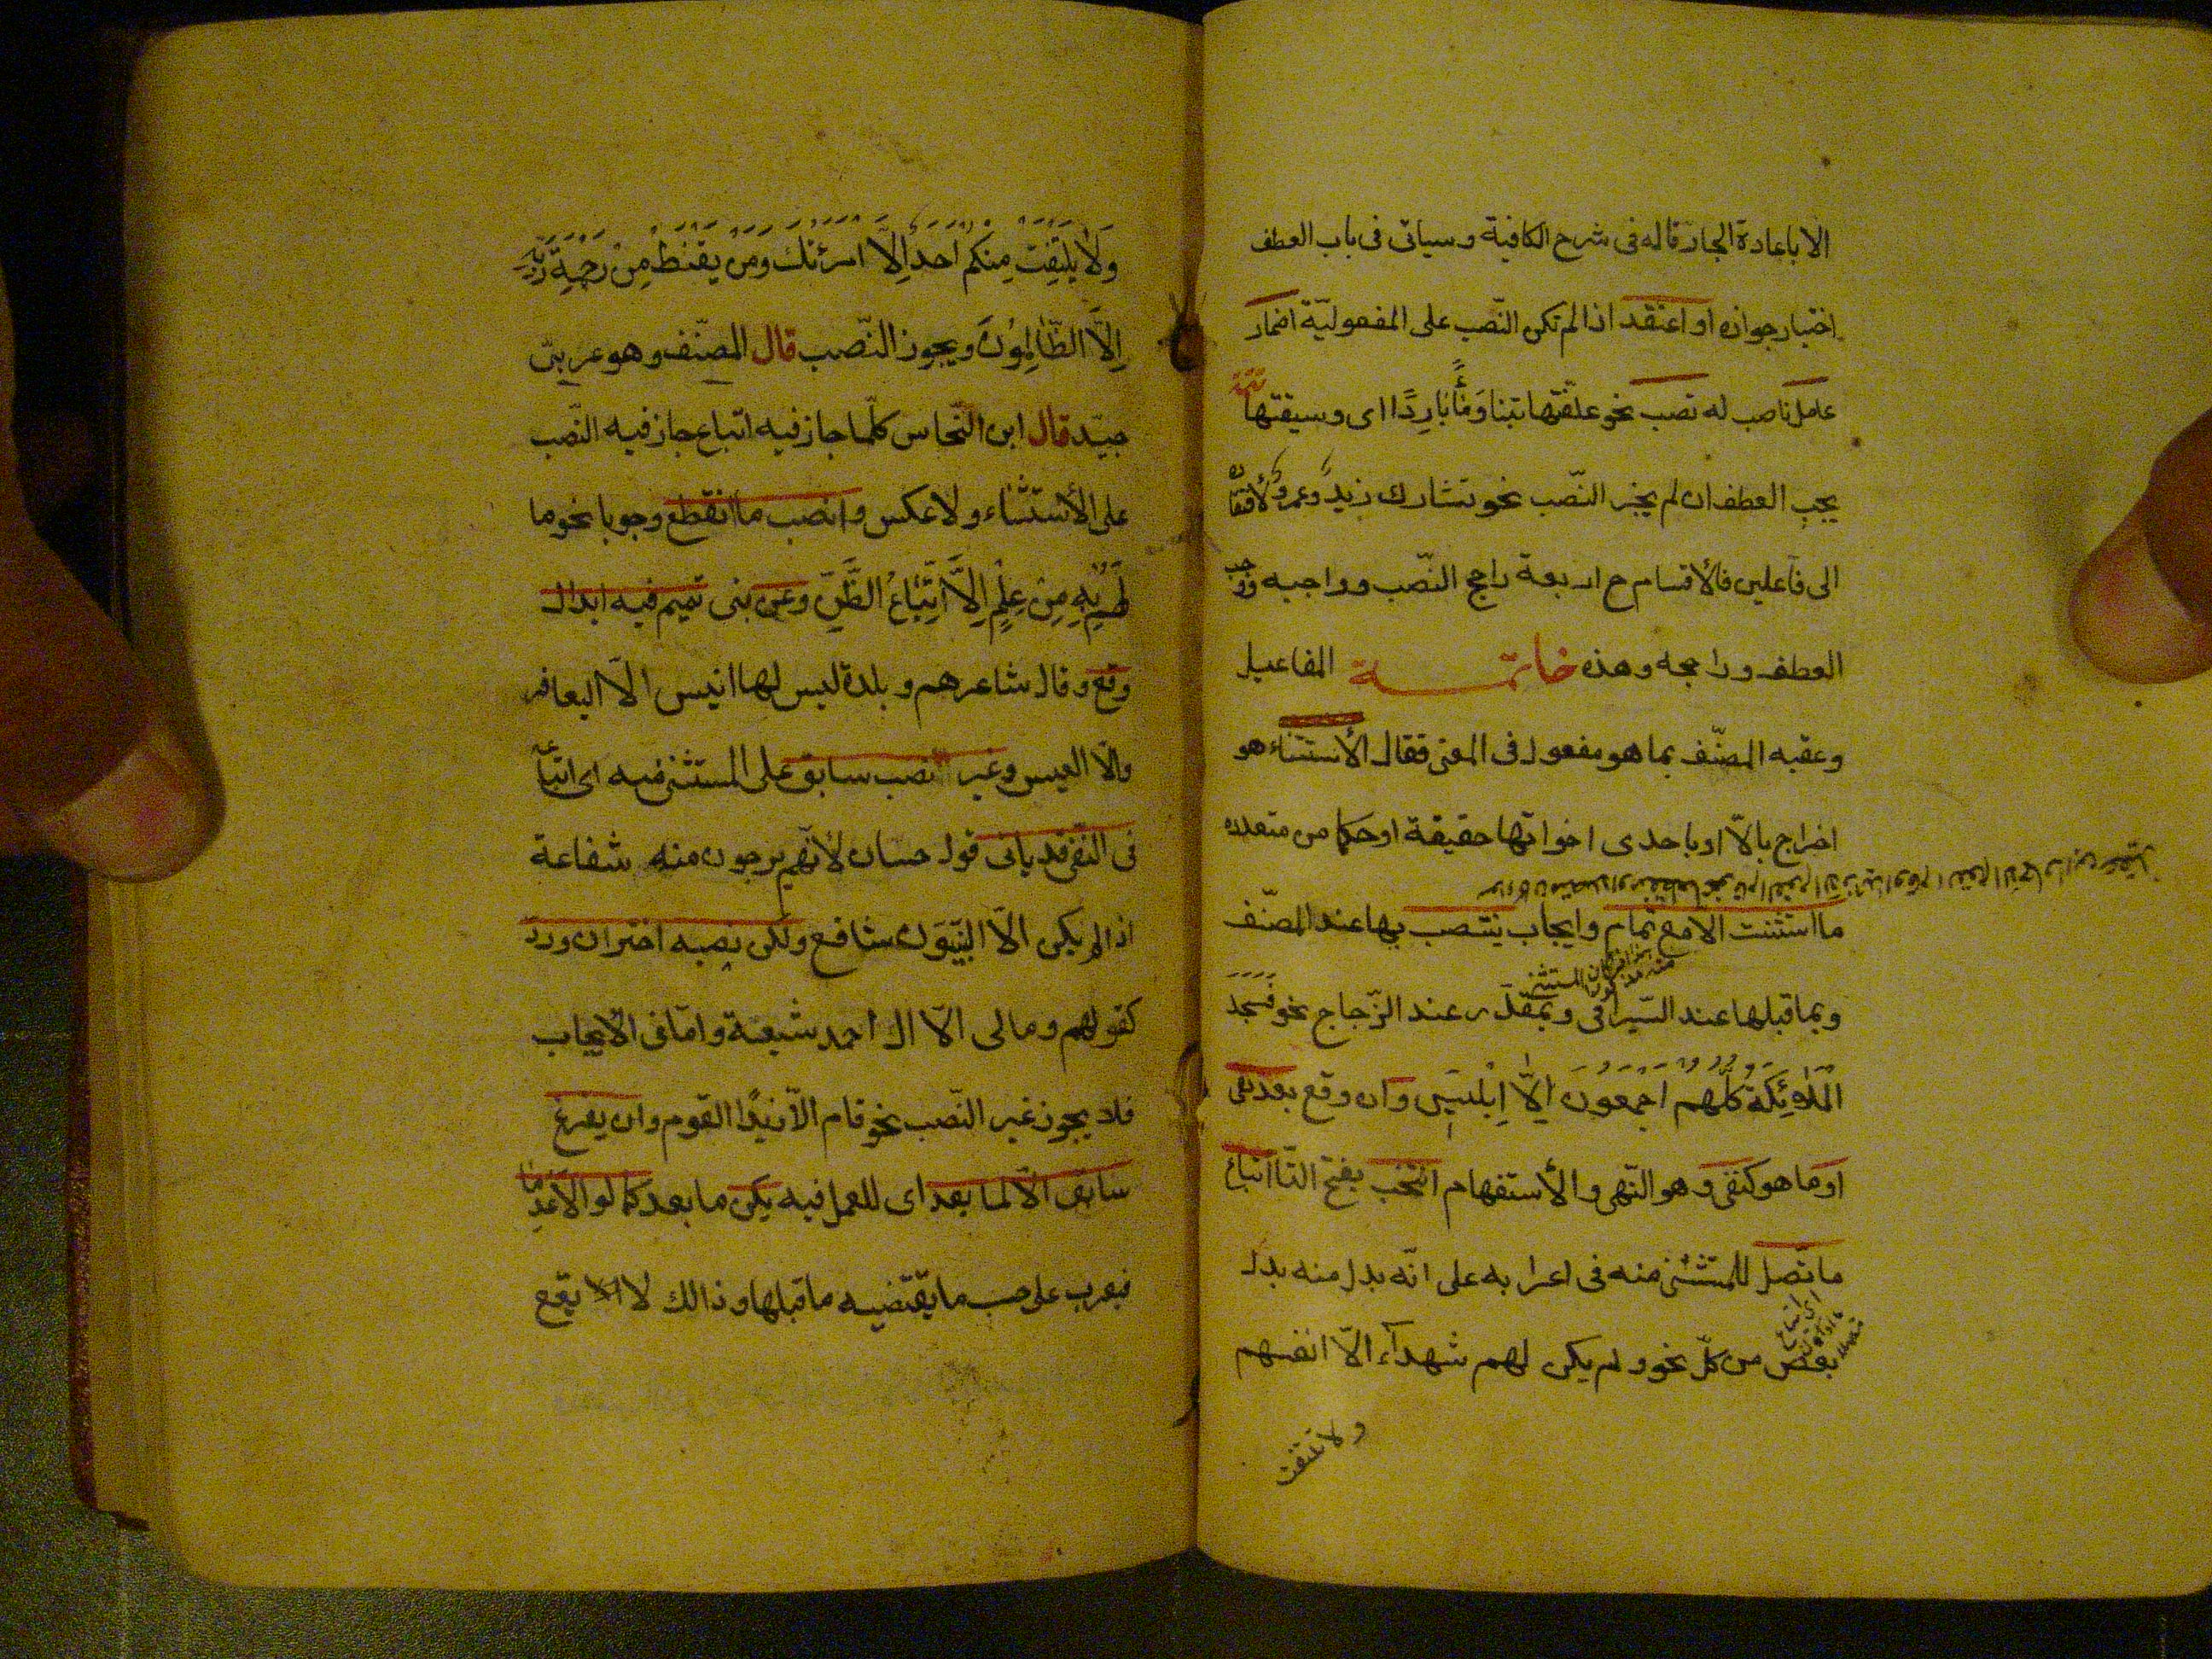 الا باعادة الجار قاله فى شرح الكافية وسياتى فى باب العطف
اختيار جوازه او اعتقد اذا لم تكن النّصب على المفعوليّة اضمار
عامل ناصب له تصب نحو علفتها تبنا وَمَاًۤءً بَارِدًا اى وسيقتها تتمّة
يجب العطف ان لم يجز النّصب نحو تشارك زيدٌ وعمروٌ لافتقاره
الى فاعلين فالأقسام ح اربعة راجح النّصب وواجبه ووجب
العطف وراجحه وهذه خاتمـــــــة المفاعيل
وعقبه المصنّف بما هو مفعول فى المعنى فقال الأستثناء هو
اخراج بالّا او باحدى اخواتها حقيقة او حكما من متعدده
ما استثنت الا مع تمام وايجاب ينتصب بها عند المصنّف
وبما قبلها عند السّيرافى وبمقدّر عند الزّجاج نحو فَسَجَدَ
المَلٰۤئِكَةُ كُلُّهم اَجْمعُونَ اِلَّا اِبْليسَ وان وقع بعد نفى
او ما هو كنفى وهو النّهى والأستفهام انتخب بفتح التّا اتباع
ما تّصل للمستثنى منه فى اعرابه على انّه بدل منه بدل
بعض من كلّ نحو ولم يكن لهم شهدآء الّا انفسهم
ولا يلتفت
وَلَا يَلْتَفِتْ مِنكُم اَحَدٌ اِلَّا امرئتك وَمَن يَقْنَطُ مِنْ رَحْمَةِ رَبِّه
اِلَّا الظَّالِمُونَ ويجوز النّصب قال المصنّف وهو عربىّ
جيّد قال ابن النّحاس كلّما جاز فيه اتباع جاز فيه النّصب
على الأستثناء ولا عكس وانصب ما انقطع وجوبا نحو ما
لَهُم بِهِ مِنْ عِلْمٍ اِلَّا اتِّبَاعَ الظَّنِّ وعن بنى تميم فيه ابدال
وقع وقال شاعرهم وبلدة ليس لها انيس الّا اليعافر
والّا العيس وغير نصب سابق على المستثنى منه اى اتباع
فى النّفى قد ياتى قول حسان لأنّهم يرجون منه شفاعة
اذا لم يكن الّا النّبيّون شافع ولكن نصبه اختر ان ورد
كقولهم وما لى الّا ال احمد شيعة وامّا فى الأيجاب
فلا يجوز غير النّصب نحو قام الّا زيدًا القوم وان يفرغ
سابق الّا لما بعد اى للعمل فيه يكن ما بعد كما لو الّا عدما
فيعرب على حسب ما يقتضيه ما قبلها وذالك لا الا يقع